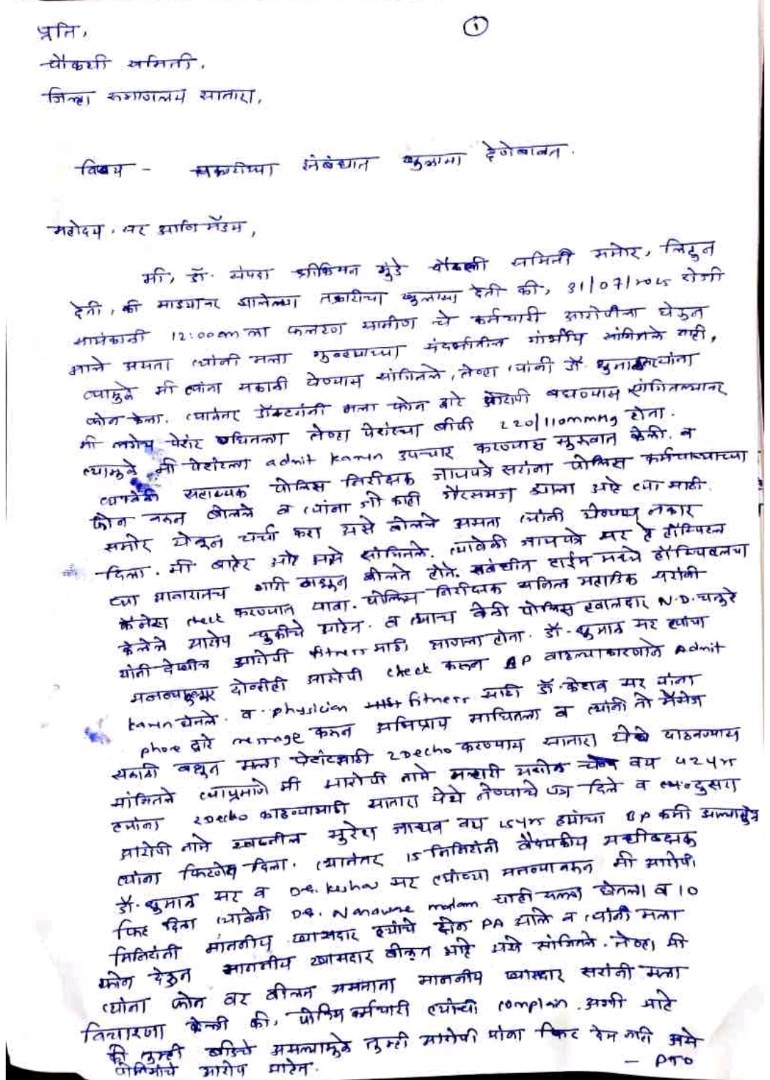 ①
प्रति,
चौकशी समिती,
जिल्हा रुग्णालय सातारा,
विषय - तक्रारीच्या संबंधात खुलासा देणेबाबत.
महोदय, सर आणि मॅडम,
मी, डॉ. संपदा मुंडे चौकशी समिती समोर, लिहून
देती, की माझ्यावर झालेल्या तक्रारीचा खुलासा देती की, 31/07/2025 रोजी
12:00am ला फलटण ग्रामीण चे कर्मचारी आरोपीला घेऊन
आले असता त्यांनी मला गुन्ह्याच्या संदर्भातील गांभीर्य सांगितले नाही,
त्यामुळे मी त्यांना सकाळी येण्यास सांगितले, तेव्हा त्यांनी डॉ. धुमाळ यांना
फोन केला. त्यानंतर डॉक्टरांनी मला फोन द्वारे आरोपी बघण्यास सांगितल्यावर
मी लगेच पेशंट बघितला तेव्हा पेशंटचा बीपी 220/110mmHg होता.
त्यामुळे मी पेशंटला admit करून उपचार करण्यास सुरुवात केली. व
त्यावेळी सहाय्यक पोलिस निरीक्षक जायपत्रे सरांना पोलिस कर्मचाऱ्याच्या
फोन वरून बोलले व त्यांना जो काही गैरसमज झाला आहे त्या साठी
समोर येऊन चर्चा करा असे बोलले असता त्यांनी येण्यास नकार
दिला. मी बाहेर आहे असे सांगितले. त्यावेळी जायपत्रे सर हे हॉस्पिटल
च्या आवारातच गाडी काढून बोलत होते.
कॅमेरा check करण्यात यावा. पोलिस निरीक्षक अनिल महाडिक सरांनी
केलेले आरोप चुकीचे आहेत. व त्याच वेळी पोलिस हवालदार N.D. चतुरे
यांनी देखील आरोपी fitness साठी आणला होता. डॉ. धुमाळ सर त्यांच्या
दोन्हीही आरोपी check करून BP वाढल्याकारणाने Admit
करून घेतले. व physician fitness साठी डॉ. केशव सर यांना
phone द्वारे message करून अभिप्राय मागितला व त्यांनी तो मॅसेज
सकाळी बघून मला पेशंटसाठी 2Decho करण्यास सातारा येथे पाठवण्यास
सांगितले त्याप्रमाणे मी आरोपी नामे मल्हारी वय 42yr
ह्यांना 2Decho काढण्यासाठी सातारा येथे नेण्याचे पत्र दिले व दुसरा
आरोपी नामे स्वप्नील सुरेश जाधव वय ह्यांचा BP कमी
त्यांना फिटनेस दिला. त्यानंतर 15 मिनिटांनी वैद्यकीय अधीक्षक
डॉ. धुमाळ सर व Dr. Keshav सर त्यांच्या सांगण्यावरून मी आरोपी
फिट दिला त्यावेळी Dr. Nanaware madam यांचाही सल्ला घेतला व 10
मिनिटांनी माननीय खासदार ह्यांचे दोन PA आले व त्यांनी मला
फोन देऊन माननीय खासदार बोलत आहे असे सांगितले. तेव्हा मी
त्यांना फोन वर बोलत असताना माननीय खासदार सरांनी मला
विचारणा केली की, पोलिस कर्मचारी त्यांची complain अशी आहे
की तुम्ही बीडचे असल्यामुळे तुम्ही आरोपी यांना फिट देत नाही असे
पोलिसांचे आरोप आहेत.
- PTO